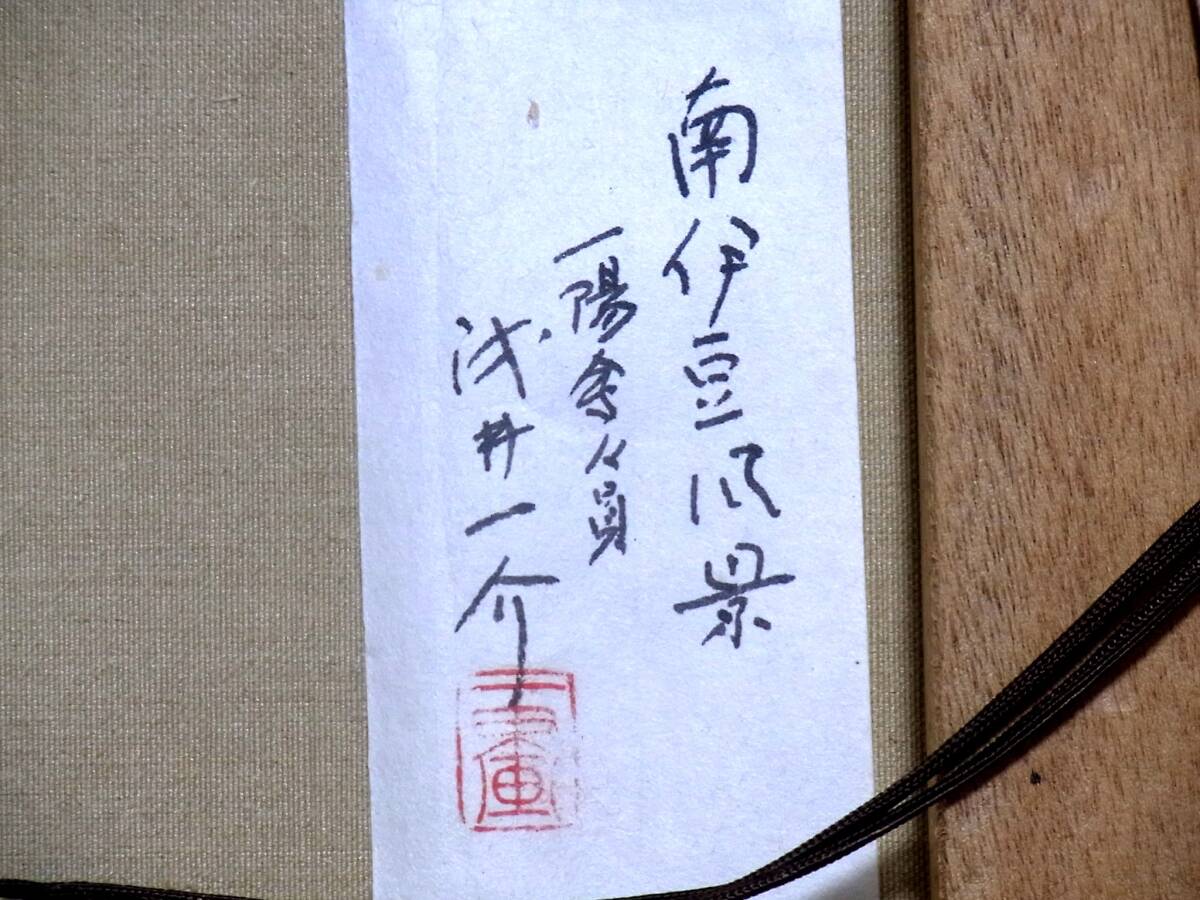 南伊豆风景
一陽會々員
浅井一介